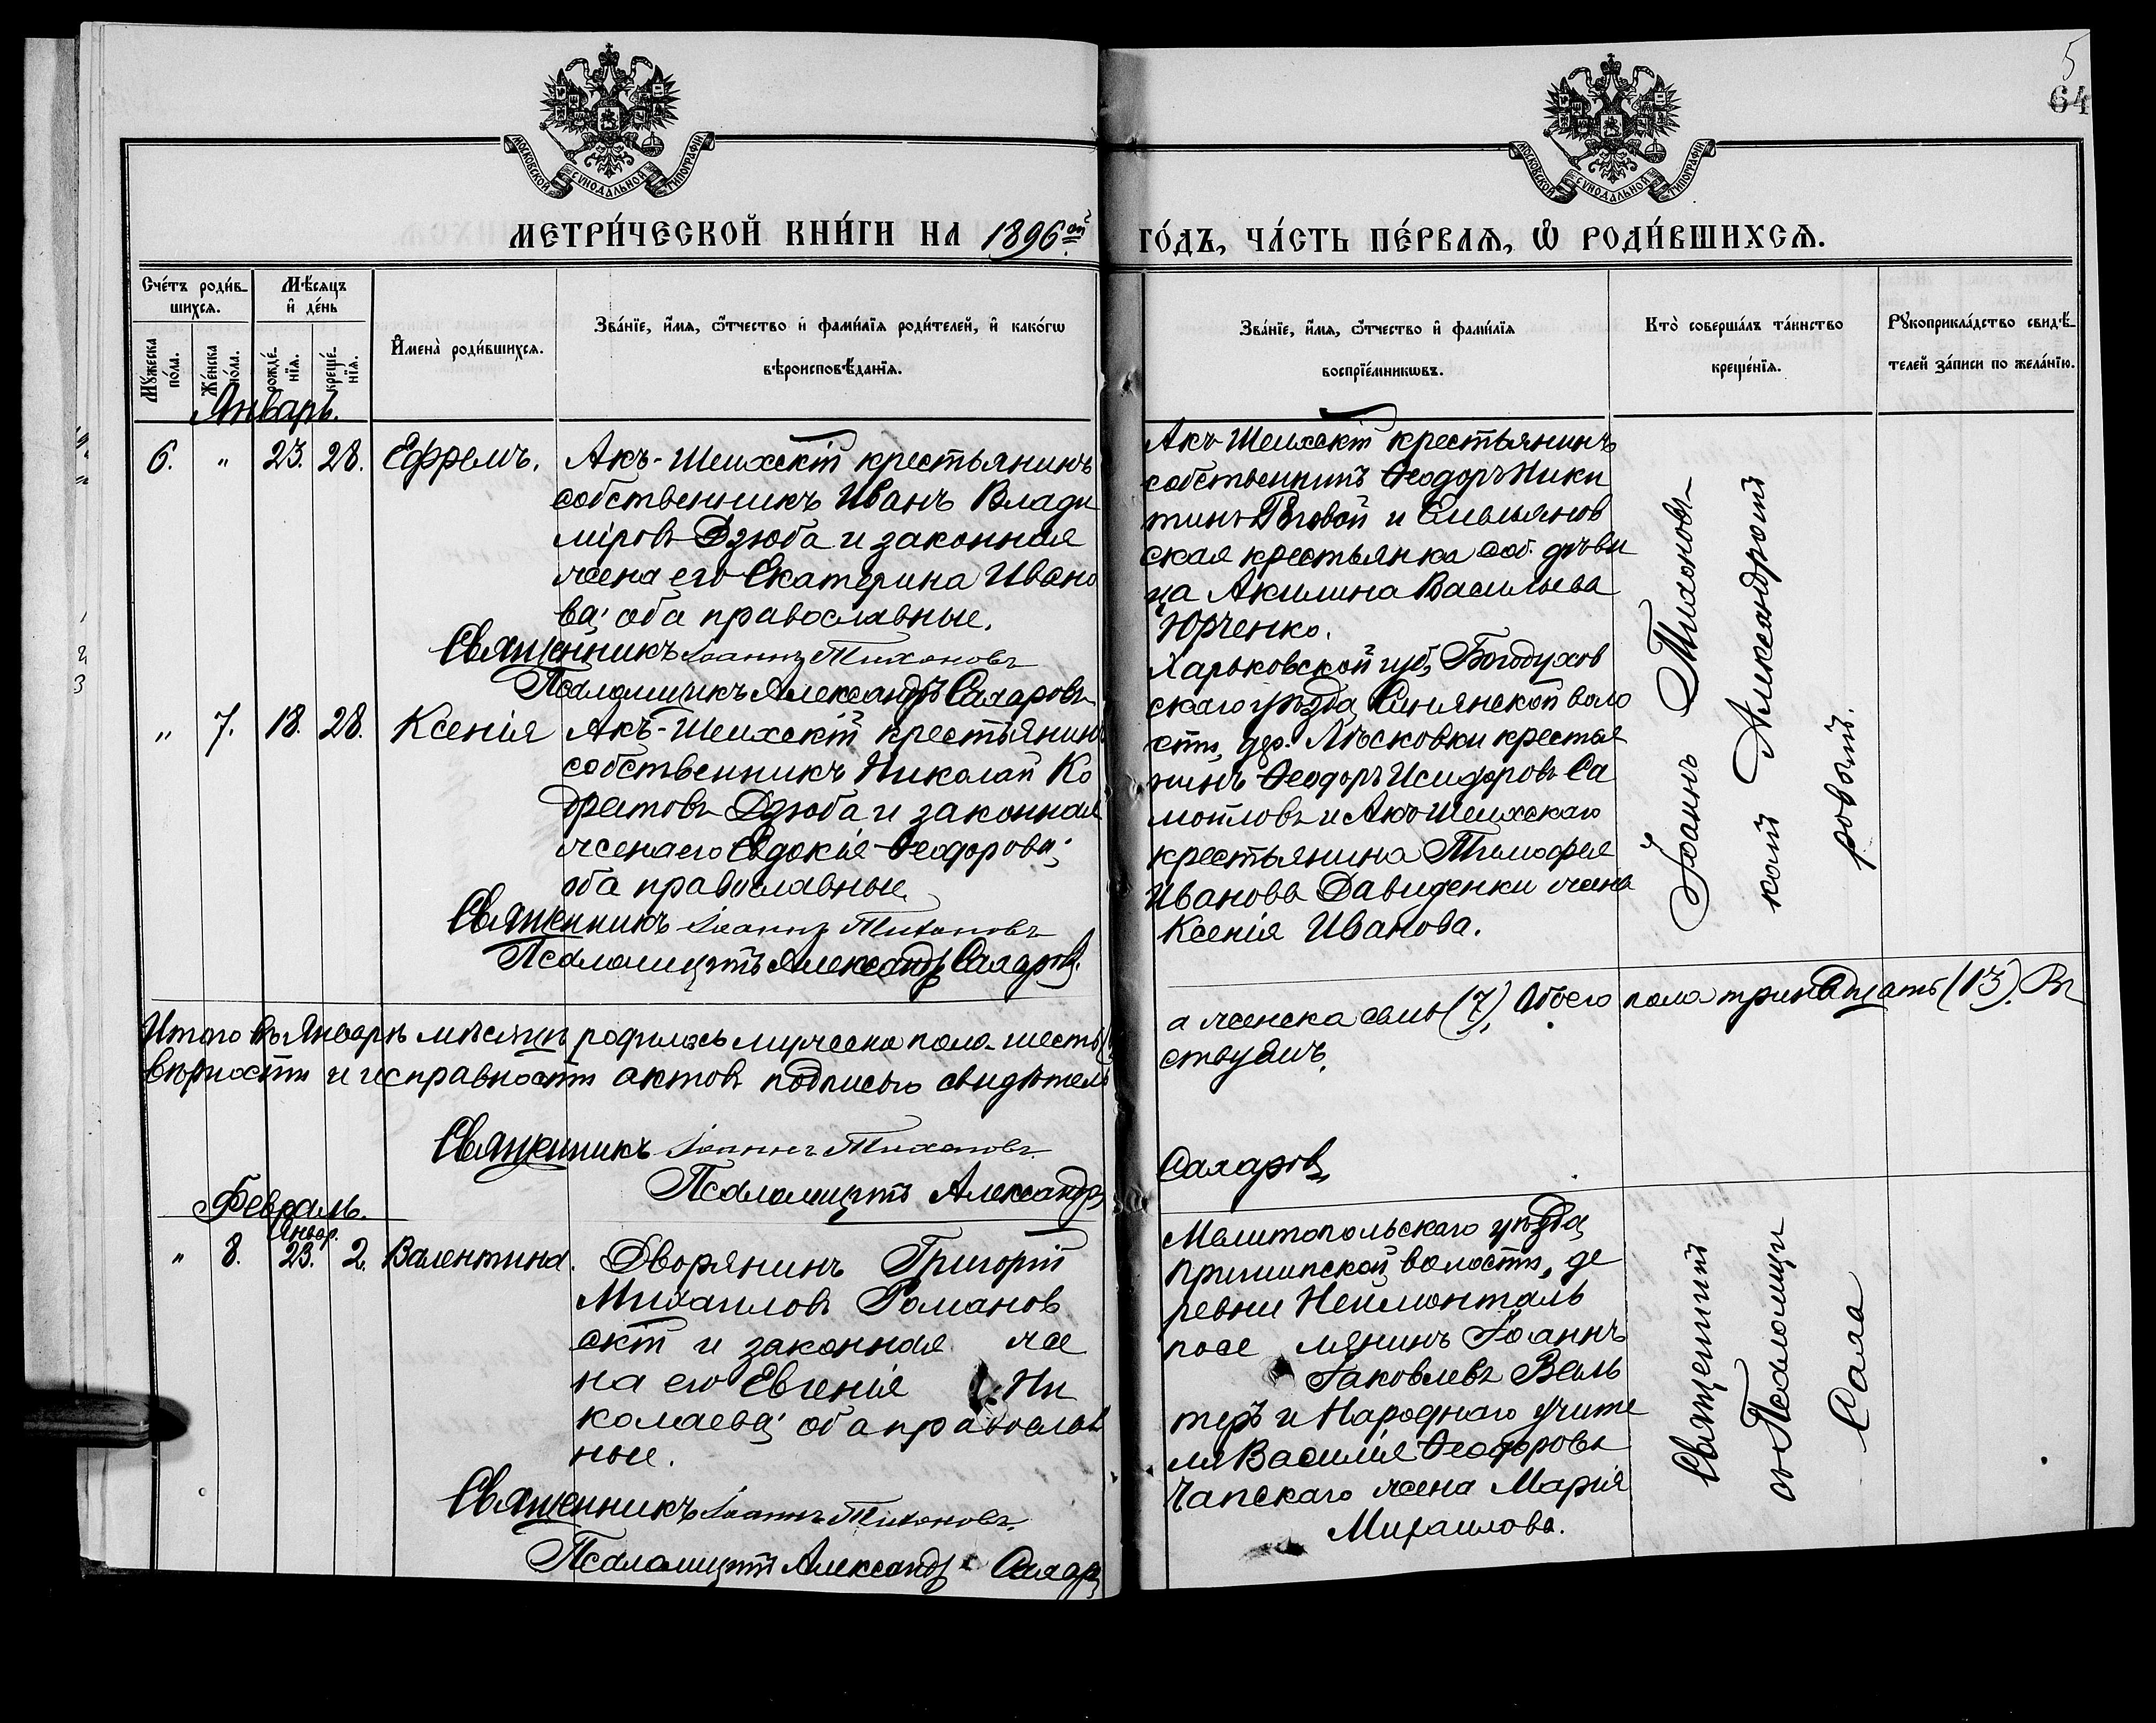 5
64
МОСКОВСКОЙ СУНОДАЛЬНОЙ ТИПОГРАФІИ
МОСКОВСКОЙ СУНОДАЛЬНОЙ ТИПОГРАФІИ
МЕТРИ́ЧЕСКОЙ КНИ́ГИ НА 1896ой
ГО́ДЪ, ЧА́СТЬ ПЕ́РВАѦ, Ѡ҆ РОДИ́ВШИХСѦ.
Сче́тъ роди́в-
шихсѧ.
Мѣ́сѧцъ
и҆ де́нь
Мꙋ́жеска
по́ла.
Же́нска
по́ла.
рожде́-
нїѧ.
креще́-
нїѧ.
И҆мена̀ роди́вшихсѧ.
Зва́нїе, и҆́мѧ, ѻ҆́тчество и҆ фами́лїѧ роди́телей, и҆ како́гѡ
вѣроисповѣ́данїѧ.
Зва́нїе, и҆́мѧ, ѻ҆́тчество и҆ фами́лїѧ
воспрїе́мникѡвъ.
Кто̀ соверша́лъ та́инство
креще́нїѧ.
Рꙋкоприкла́дство свидѣ́-
телей за́писи по жела́нїю.
Январь.
6. " 23. 28. Ефремъ.
Акъ-Шеихскій крестьянинъ
собственникъ Иванъ Влади
міровъ Дзюба и законная
жена его Екатерина Ивано
ва; оба православные.
Священникъ Іоаннъ Тихоновъ
Псаломщикъ Александръ Сахаровъ
Акъ-Шеихскій крестьянинъ
собственникъ Ѳеодоръ Ники
тинъ Роговой и Емельянов
ская крестьянка соб. дѣви
ца Акилина Васильева
Юрченко.
" 7. 18. 28. Ксенія
Акъ-Шеихскій крестьянинъ
собственникъ Николай Ко
дратовъ Дзюба и законная
жена его Евдокія Ѳеодорова;
оба православные.
Священникъ Іоаннъ Тихоновъ
Псаломщикъ Александръ Сахаровъ.
Харьковской губ., Богодухов
скаго уѣзда, Сѣнянской воло
сти, дер. Лѣсковки крестья
нинъ Ѳеодоръ Исидоровъ Са
мойловъ и Акъ-Шеихскаго
крестьянина Тимофея
Иванова Давиденки жена
Ксенія Иванова.
Іоаннъ Тихоновъ
комъ Александромъ
ровымъ.
Итого въ Январѣ мѣсяцѣ родилось мужеска пола шесть
а женска семь (7), Обоего пола тринадцать (13). Въ
вѣрности и исправности актовъ подписью свидѣтель
ствуемъ.
Священникъ Іоаннъ Тихоновъ
Псаломщикъ Александръ
Сахаровъ
Февраль.
Январ.
" 8. 23. 2. Валентина.
Дворянинъ Григорій
Михаиловъ Романов
скій и законная же
на его Евгенія Ни
колаева; оба православ
ные.
Священникъ Іоаннъ Тихоновъ.
Псаломщикъ Александръ Сахар
Мелитопольскаго уѣзда,
Пришипской волости, де
ревни Неймонталь
посе лянинъ Іоаннъ
Іаковлевъ Валь
теръ и Народнаго учите
ля Василія Ѳеодорова
Чапскаго жена Марія
Михаилова.
Священникъ
съ Псаломщи
Саха